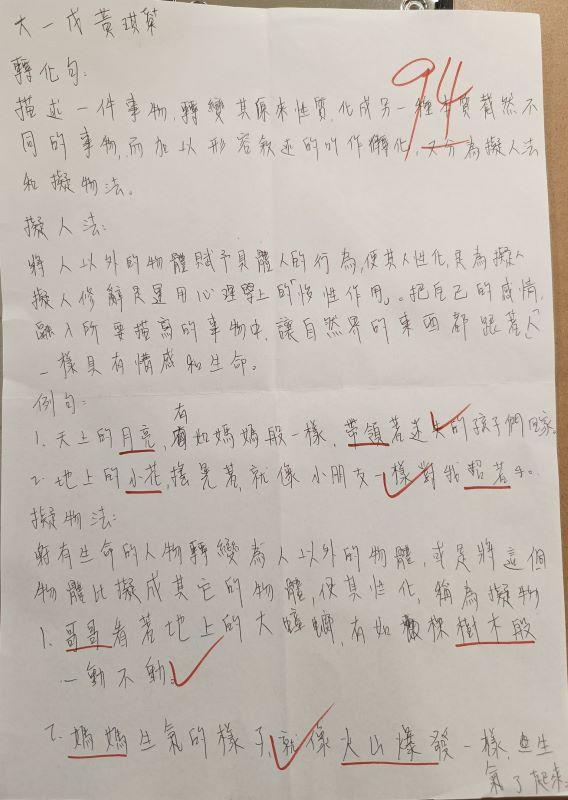 大一戊黃琪葉
轉化句:
94
描述一件事物,轉變其原來性質,化成另一種本質截然不
同的事物,而加以形容敘述的叫作轉化,又分為擬人法
和擬物法。
擬人法:
將人以外的物體賦予具體人的行為,使其人性化,是為擬人
擬人修辭是運用心理學上的「惰性作用」。把自己的感情,
融入所要描寫的事物中,讓自然界的東西都跟著「人」
一樣具有情感和生命。
例句:
1. 天上的月亮,有如媽媽般一樣,帶領著迷失的孩子們回家。
2. 地上的小花,搖晃著,就像小朋友一樣對我招著手。
擬物法:
將有生命的人物轉變為人以外的物體,或是將這個
物體比擬成其它的物體,使其性化,稱為擬物
1. 哥哥看著地上的大蟑螂,有如棵樹木般
一動不動。
2. 媽媽生氣的樣子,就像火山爆發一樣,生
氣了起來。